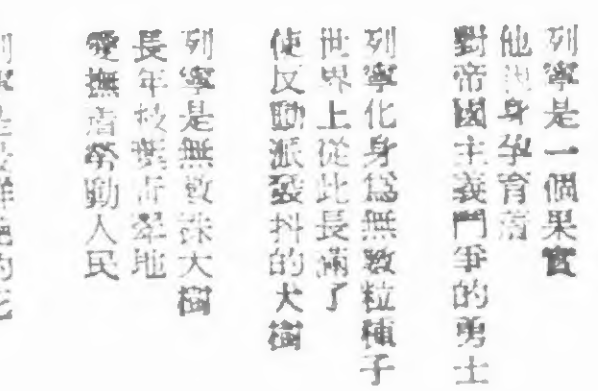 列寧是一個果實
他身孕育着
對帝國主義鬥爭的勇士
列寧化身爲無數粒種子
世界上從此長滿了
使反動派發抖的大樹
列寧是無數株大樹
長年枝葉青翠地
愛撫着勞動人民